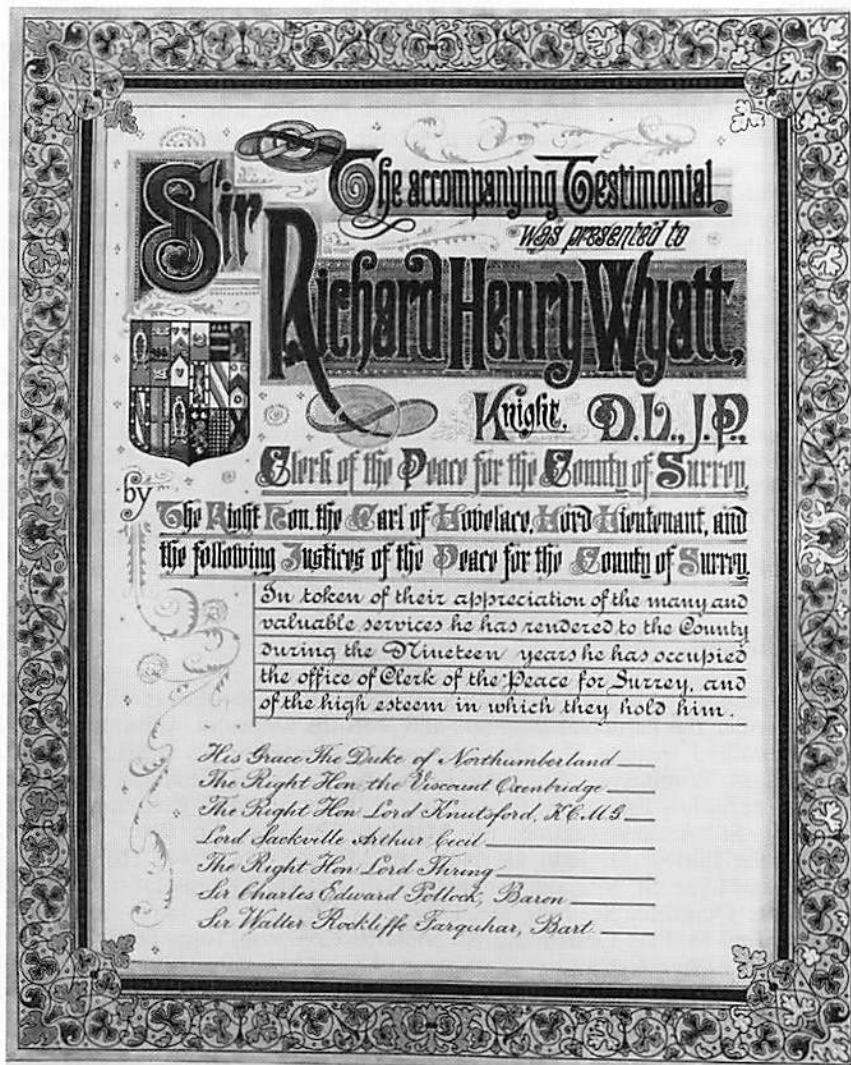 The accompanying Testimonial,
was presented to
Sir
Richard Henry Wyatt,
Knight, D.L., J.P.,
Clerk of the Peace for the County of Surrey,
by
The Right Hon. the Earl of Lovelace, Lord Lieutenant, and
the following Justices of the Peace for the County of Surrey,
In token of their appreciation of the many and
valuable services he has rendered to the County
during the Nineteen years he has occupied
the office of Clerk of the Peace for Surrey, and
of the high esteem in which they hold him.
His Grace The Duke of Northumberland
The Right Hon the Viscount Oxenbridge
The Right Hon Lord Knutsford, K.C.M.G
Lord Sackville Arthur Cecil
The Right Hon Lord Thring
Sir Charles Edward Pollock, Baron
Sir Walter Rockliffe Farquhar, Bart